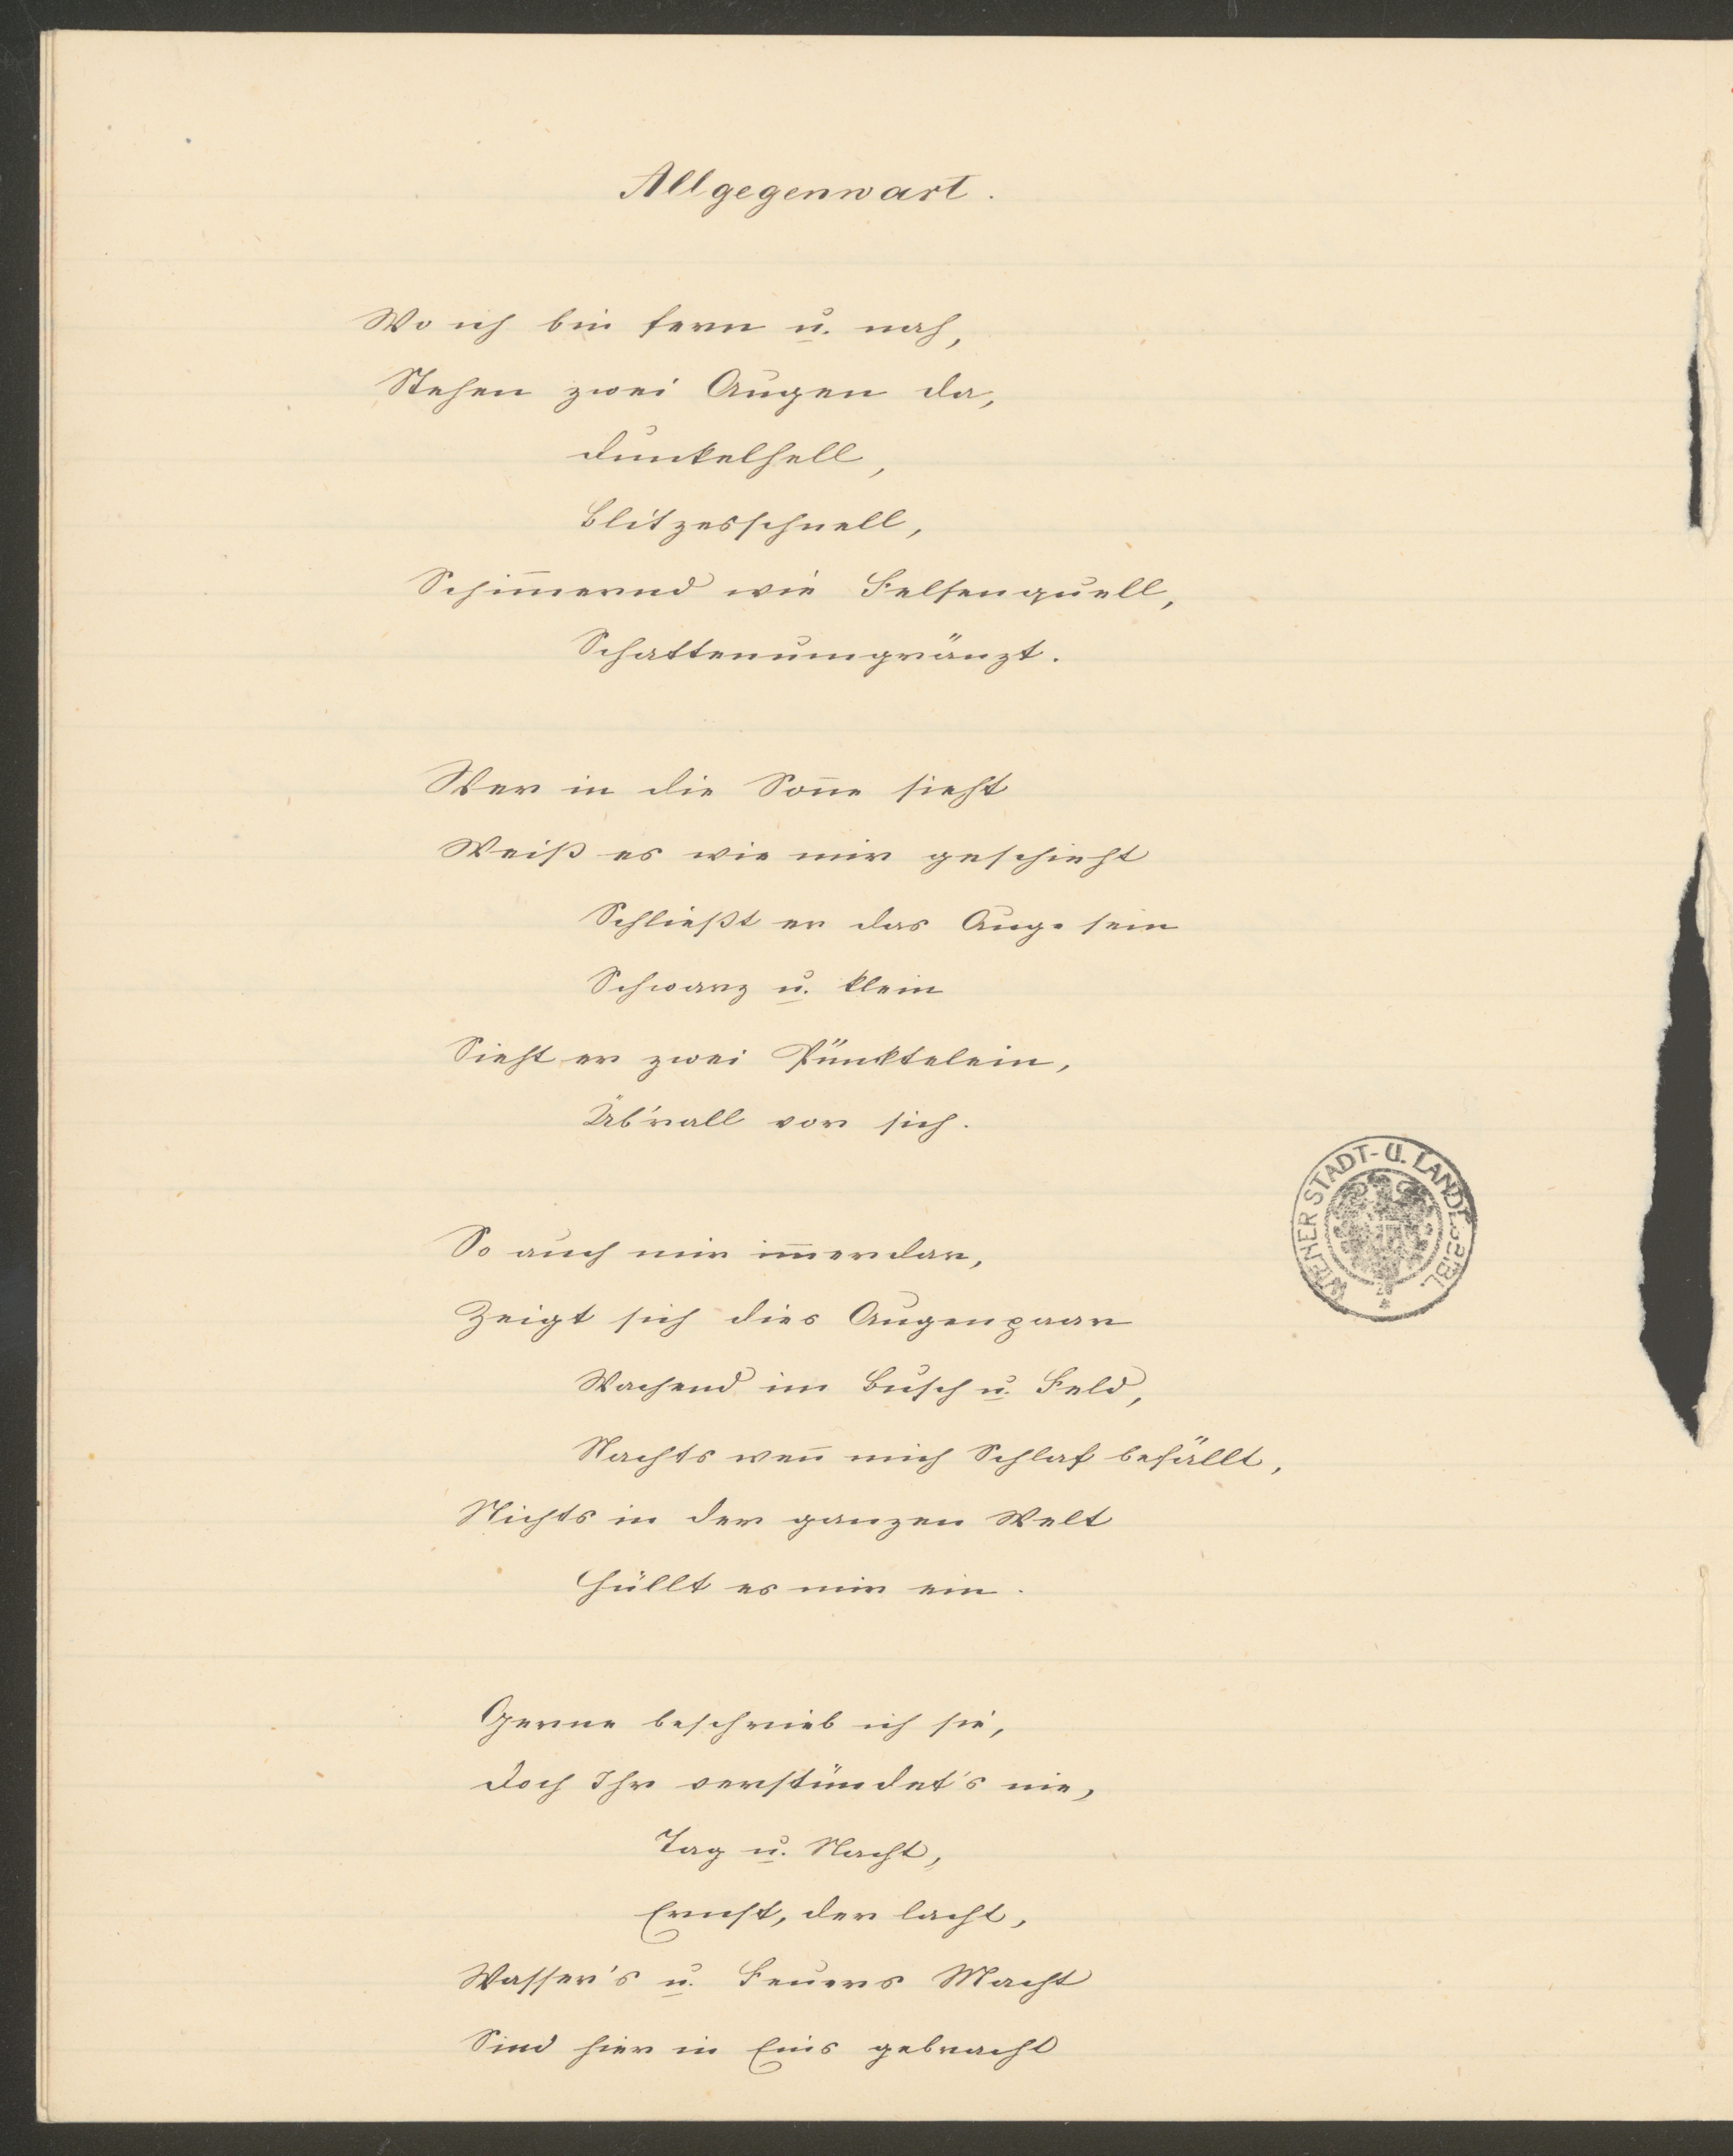 Allgegenwart.
Wo ich bin fern u. nah,
Stehen zwei Augen da,
dunkelhell,
Blitzesschnell,
Schim̅ernd wie Felsenquell,
Schattenumgränzt.
Wer in die Son̅e sieht
Weiß es wie mir geschieht
Schließt er das Auge sein
Schwarz u. klein
Sieht er zwei Pünktelein,
Üb'rall vor sich.
So auch mir im̅erdar,
Zeigt sich dies Augenpaar
Wachend im Busch u. Feld,
Nachts wen̅ mich Schlaf befällt,
Nichts in der ganzen Welt
Hüllt es mir ein.
Gerne beschrieb ich sie,
doch Ihr verstündet's nie,
Tag u. Nacht,
Ernst, der lacht,
Wasser's u. Feuers Macht
Sind hier in Eins gebracht
WIENER STADT- U. LANDESBIBL.